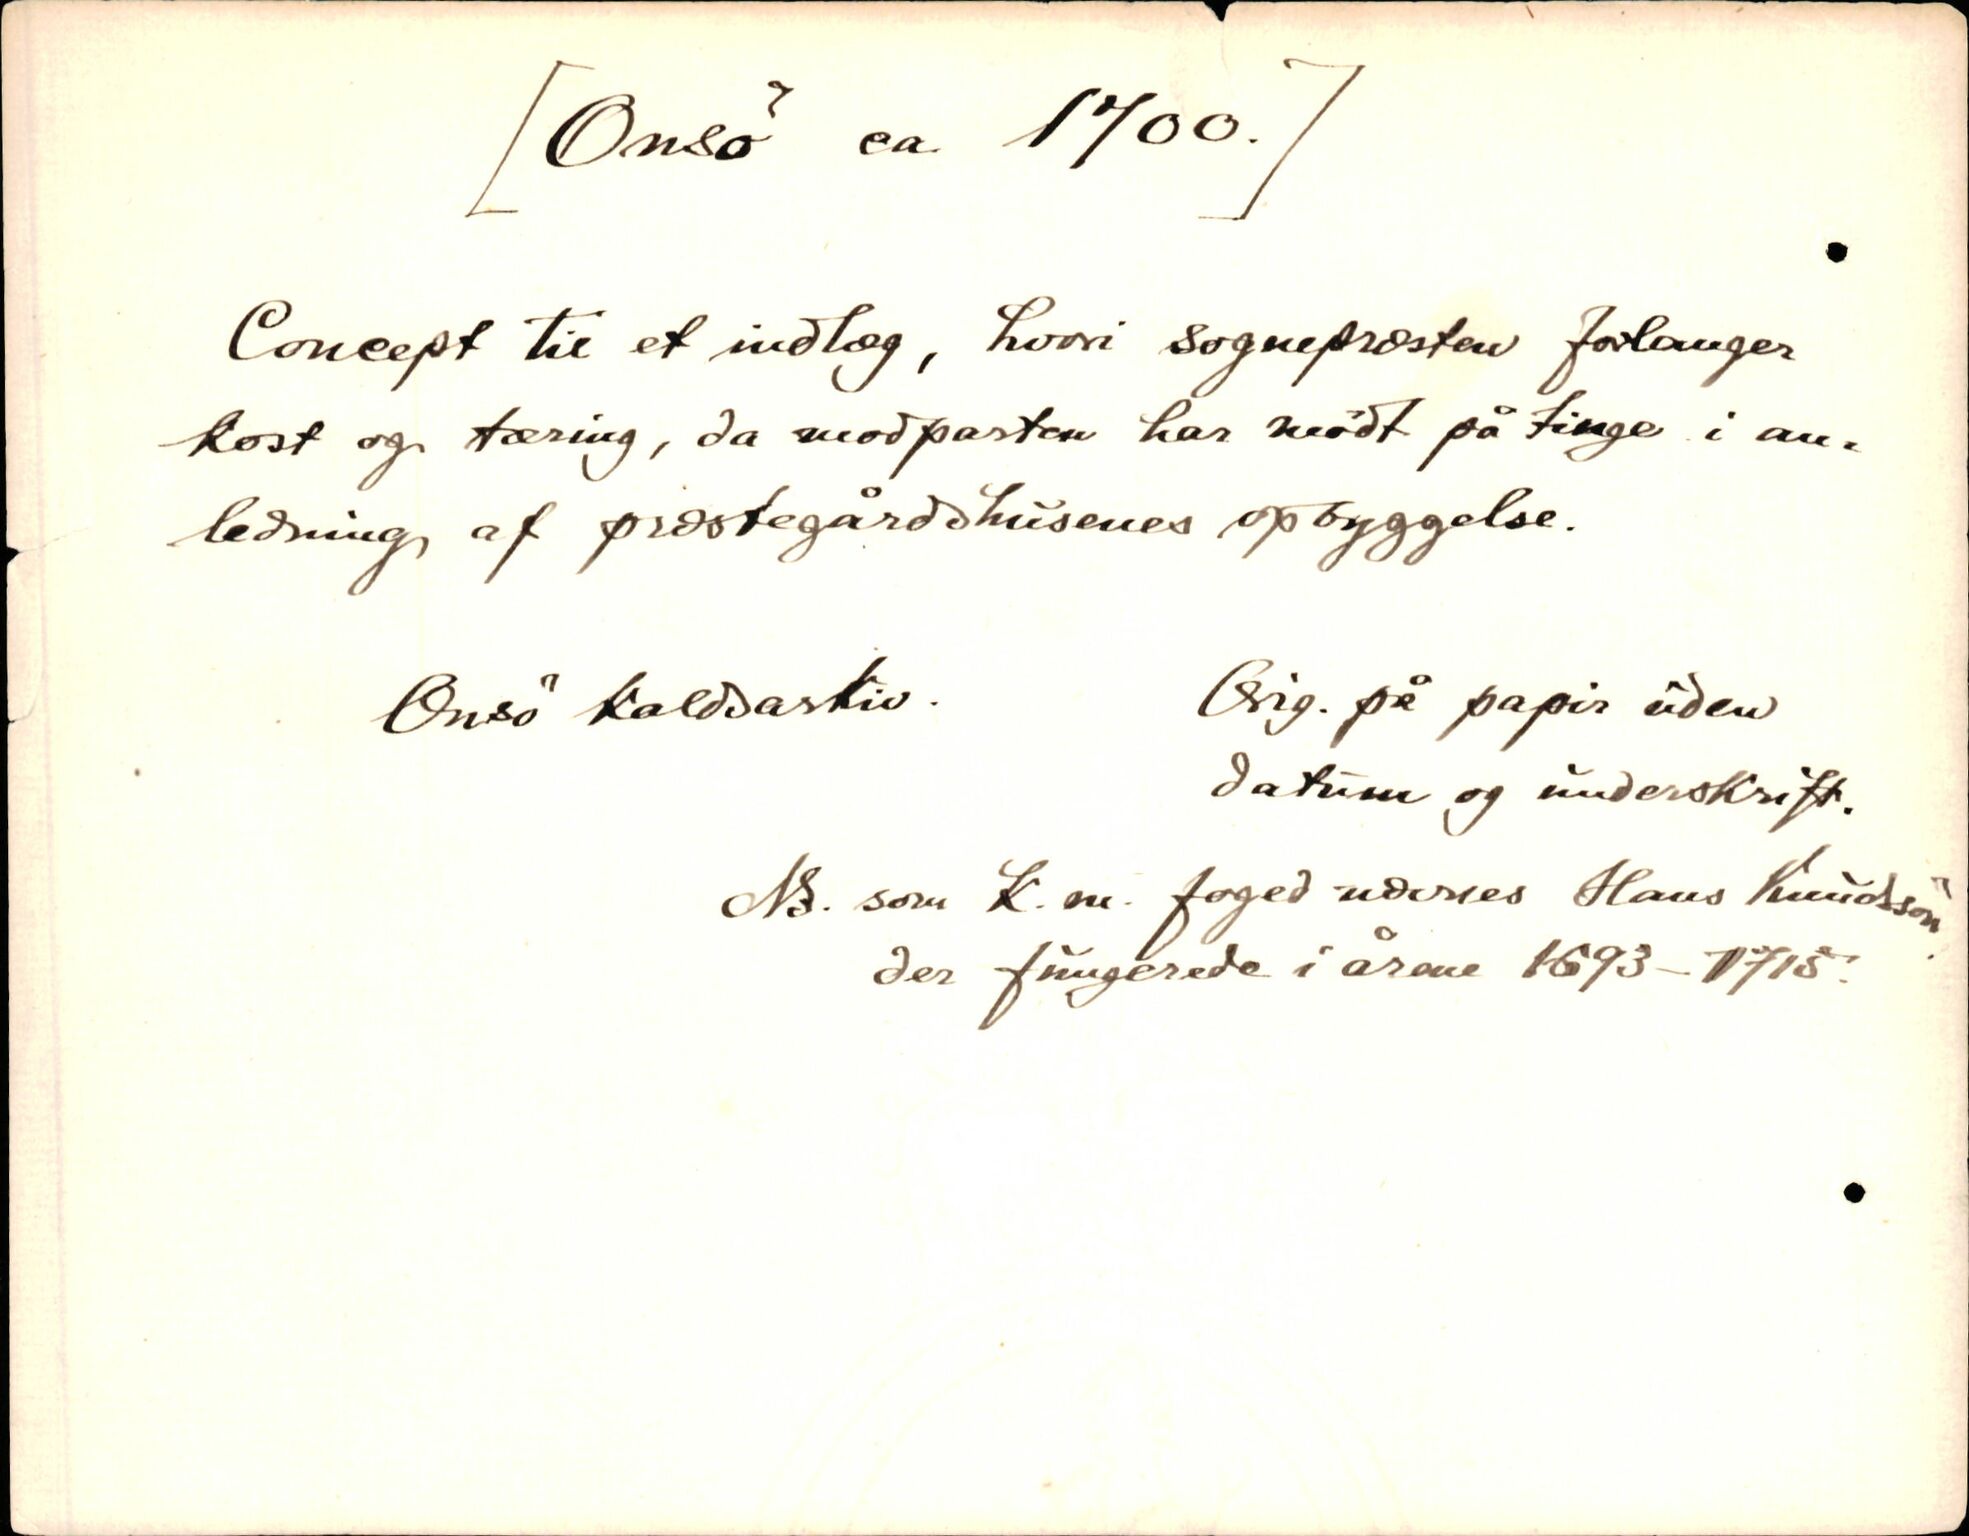 [Onsö ca 1700.]
Concept til et indlæg, hvori sognepræsten forlanger
kost og tæring, da modparten har mödt på tinge i an-
ledning af præstegårdshusenes opbyggelse.
Onsö kaldsarkiv.
Orig. på papir uden
datum og underskrift.
NB. som K. m. foged nævnes Hans Knudssön
der fungerede i årene 1693-1715.